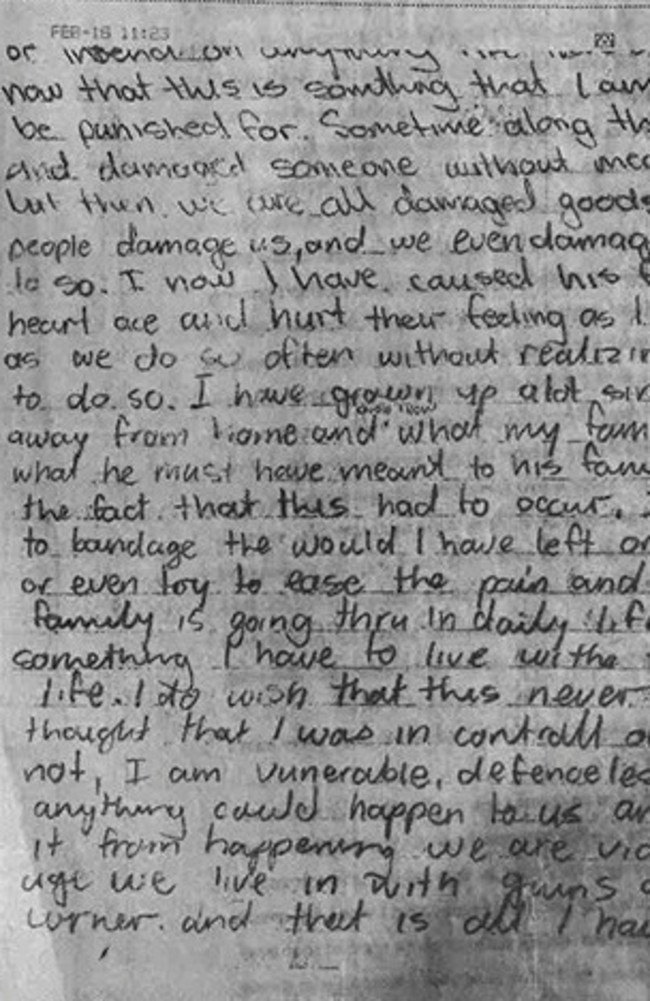 FEB-16 11:23
or on anything
now that this is somthing that I am
be punished for. Sometime along th
and damaged someone without mea
but then we are all damaged goods
people damage us, and we even damag
to so. I now I have caused his f
heart ace and hurt their feeling as I
as we do so often without realizin
to do so. I have grown up alot sin
away from home and what my fam
what he must have meant to his fam
the fact that this had to occur. I
to bandage the would I have left on
or even toy to ease the pain and
family is going thru in daily life
something I have to live withe
life. I do wish that this never
thought that I was in controll o
not, I am vunerable, defenceles
anything could happen to us an
it from happening we are vic
age we live in with guns
corner. and that is all I hav